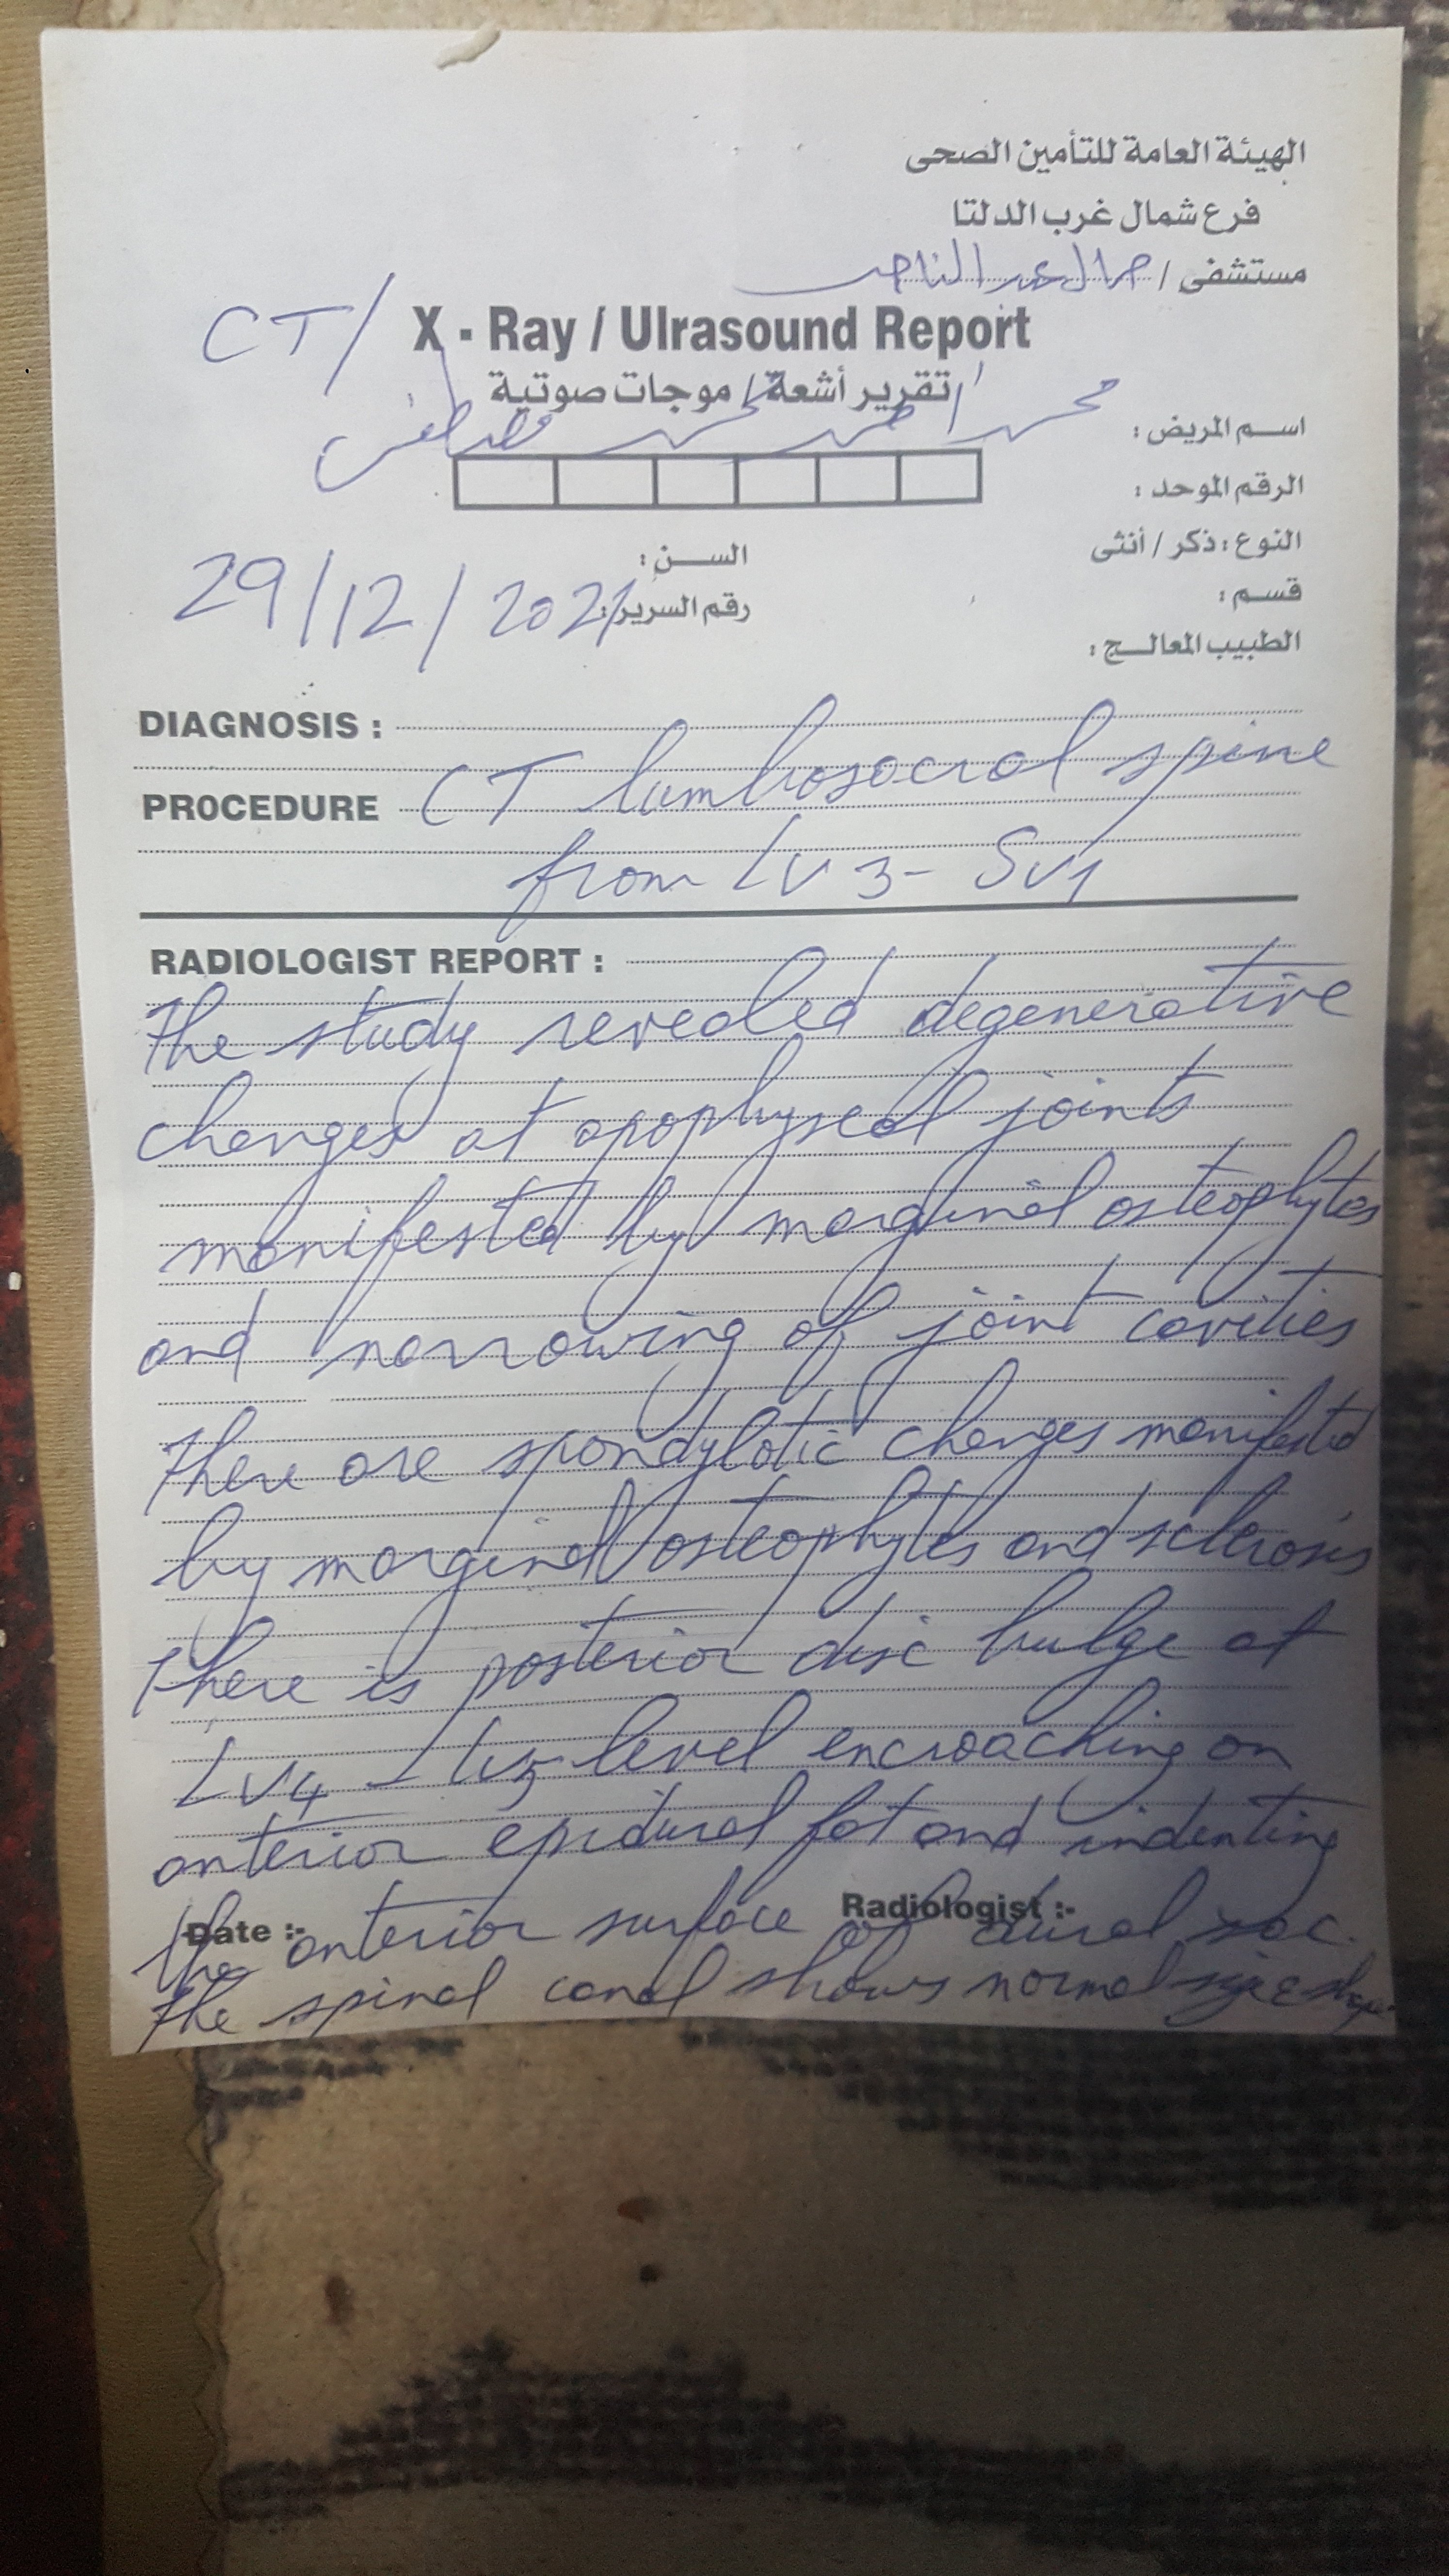 الهيئة العامة للتأمين الصحى
فرع شمال غرب الدلتا
مستشفى / جمال عبد الناصر
CT/ X - Ray / Ulrasound Report
تقرير أشعة / موجات صوتية
اسم المريض : محمد احمد محمد مصطفى
الرقم الموحد :
النوع : ذكر / أنثى السن :
29/12/2021
قسم : رقم السرير :
الطبيب المعالج :
DIAGNOSIS :
PROCEDURE CT lumbosacral spine
from LV3- SV1
RADIOLOGIST REPORT :
The study revealed degenerative
changes at apophyseal joints
manifested by marginal osteophytes
and narrowing of joint cavities
There are spondylotic changes manifested
by marginal osteophytes and sclerosis
There is posterior disc bulge at
LV4 - LV5 level encroaching on
anterior epidural fat and indenting
Date :- Radiologist :-
the anterior surface of dural sac.
The spinal canal shows normal size & shape.